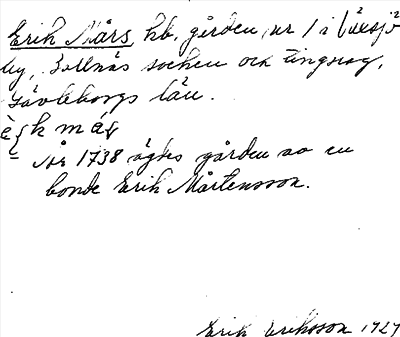 Erik Mårs, hb. gården, nr 1 i Växsjö
by, Bollnäs socken och tingslag,
Gävleborgs län.
k må
= År 1738 ägdes gården av en
bonde Erik Mårtensson.
Erik Eriksson 1927